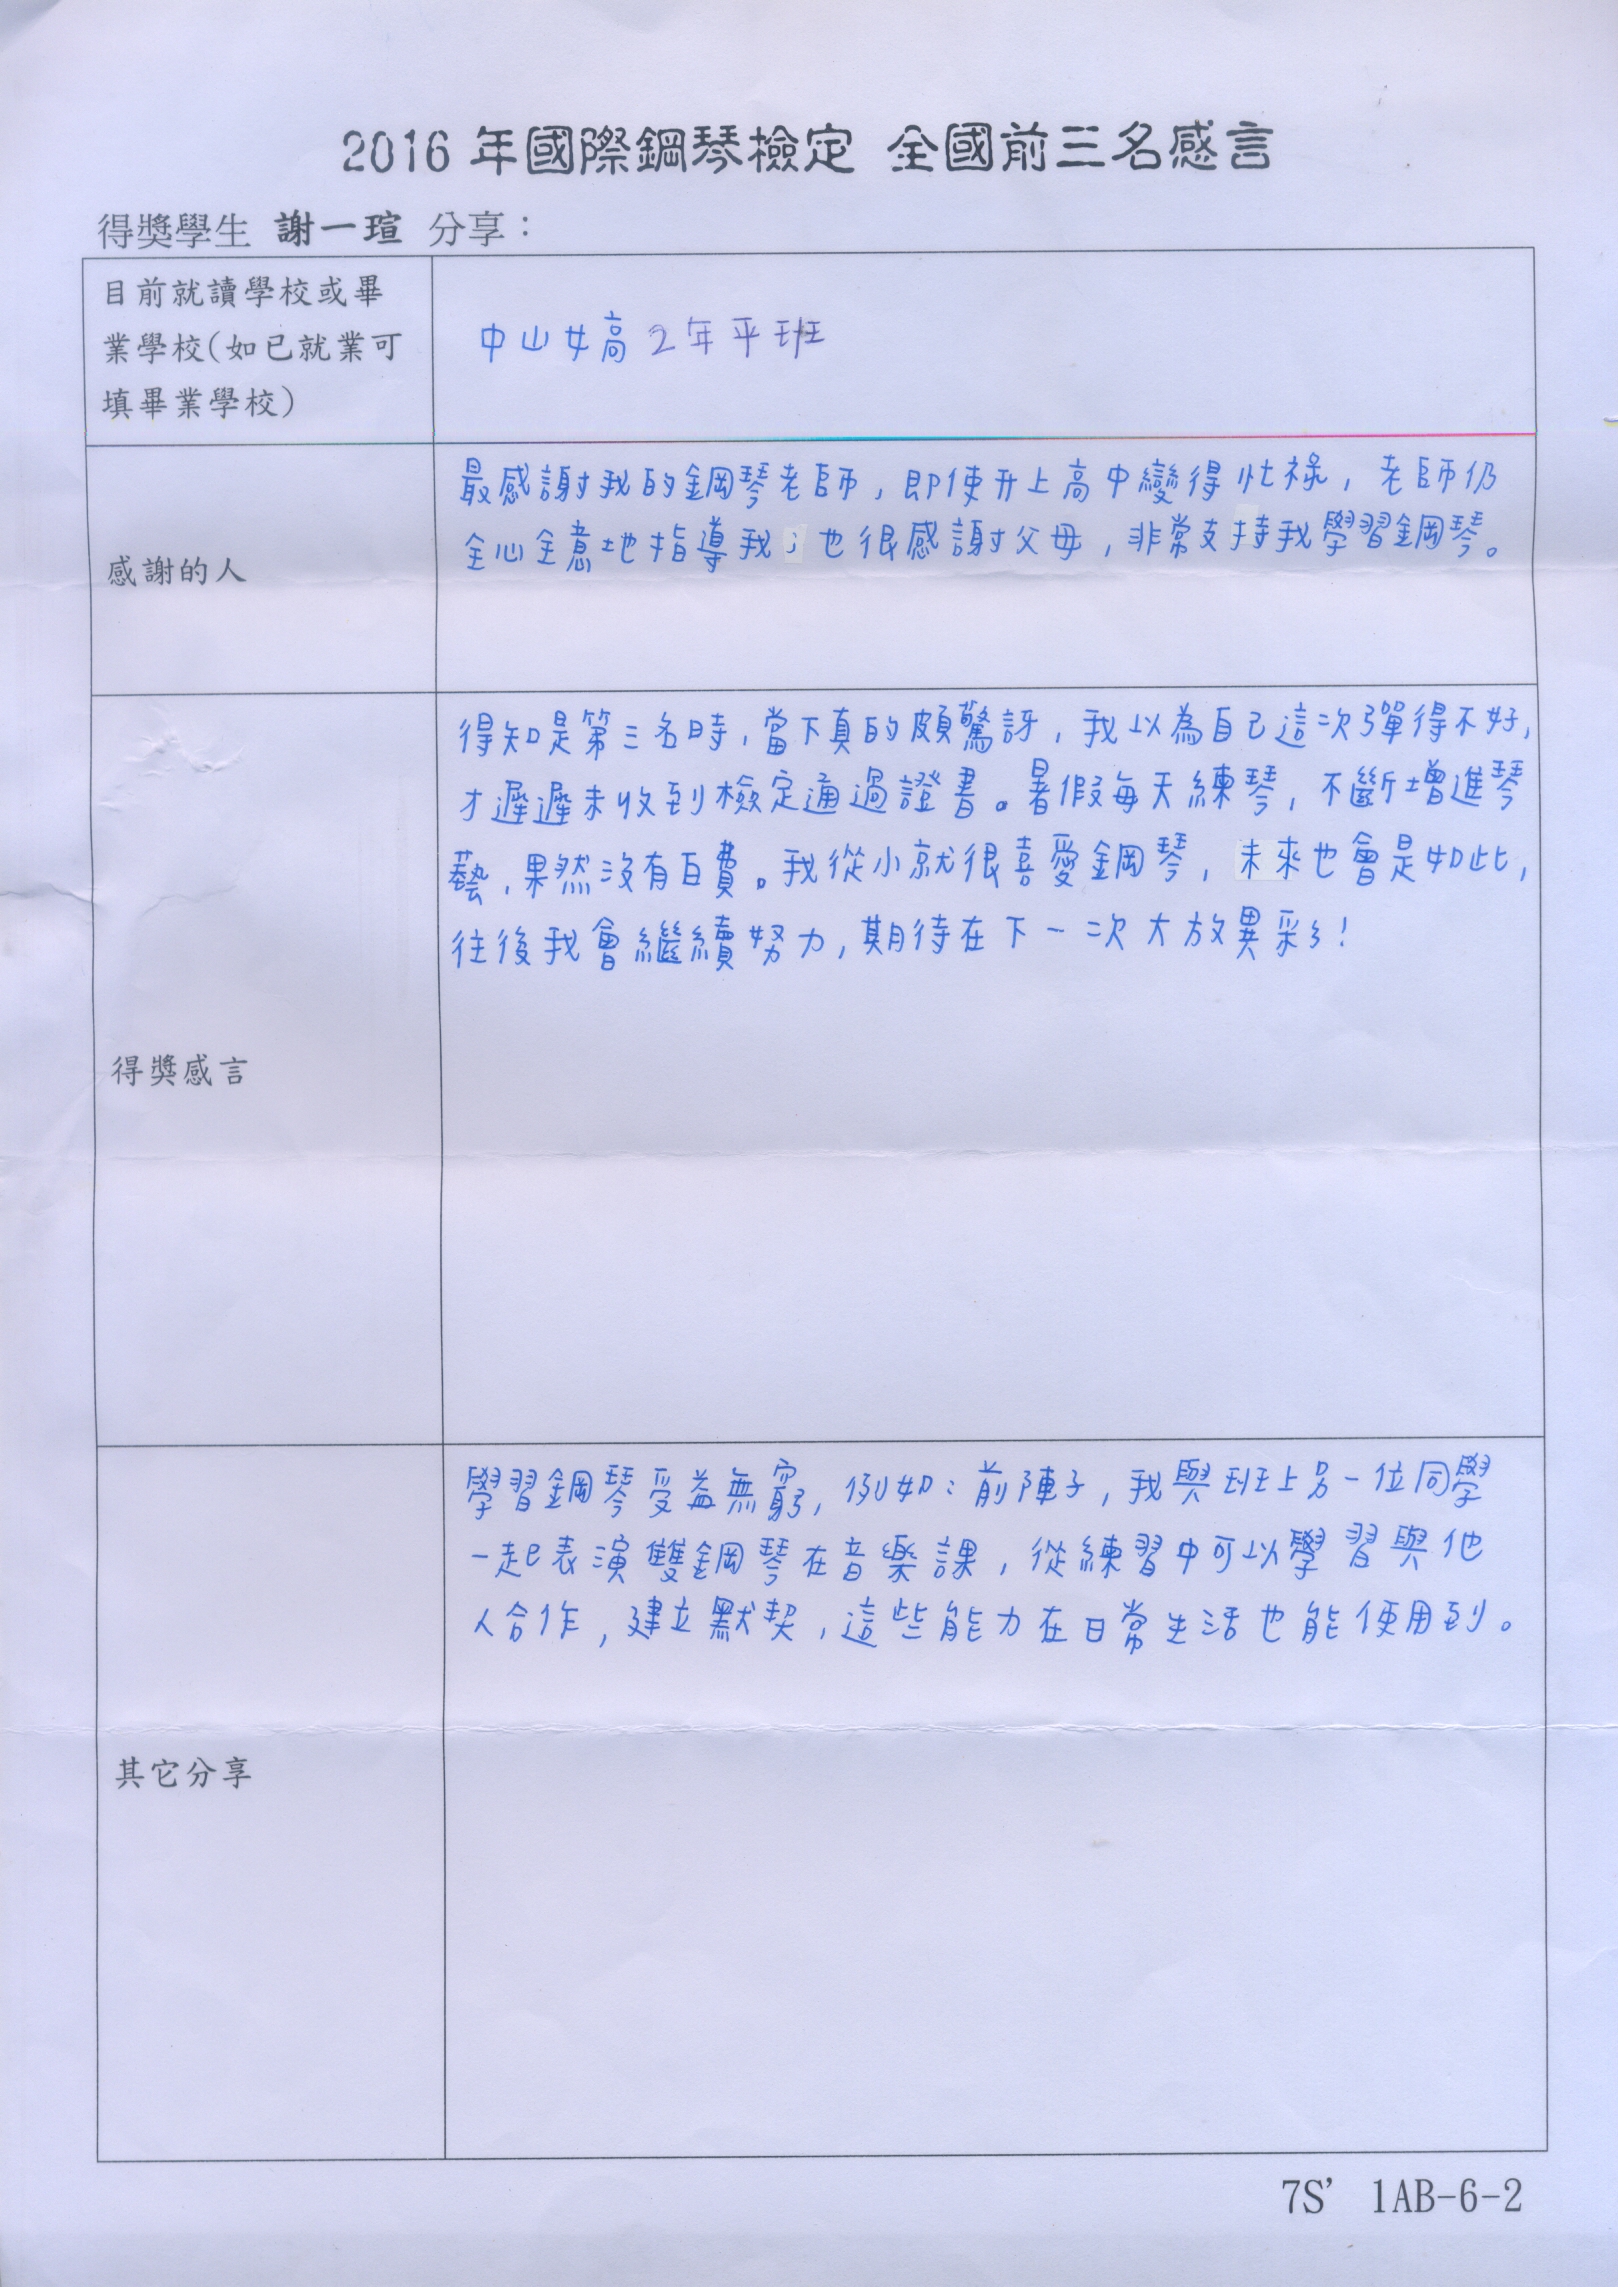 2016 年國際鋼琴檢定 全國前三名感言
得獎學生 謝一瑄 分享：
目前就讀學校或畢
業學校(如已就業可
填畢業學校)
中山女高 2年平班
感謝的人
最感謝我的鋼琴老師，即使升上高中變得忙祿，老師仍
全心全意地指導我；也很感謝父母，非常支持我學習鋼琴。
得獎感言
得知是第三名時，當下真的頗驚訝，我以為自己這次彈得不好，
才遲遲未收到檢定通過證書。暑假每天練琴，不斷增進琴
藝，果然沒有白費。我從小就很喜愛鋼琴，未來也會是如此，
往後我會繼續努力，期待在下一次大放異彩！
其它分享
學習鋼琴受益無窮，例如：前陣子，我與班上另一位同學
一起表演雙鋼琴在音樂課，從練習中可以學習與他
人合作，建立默契，這些能力在日常生活也能使用到。
7S' 1AB-6-2